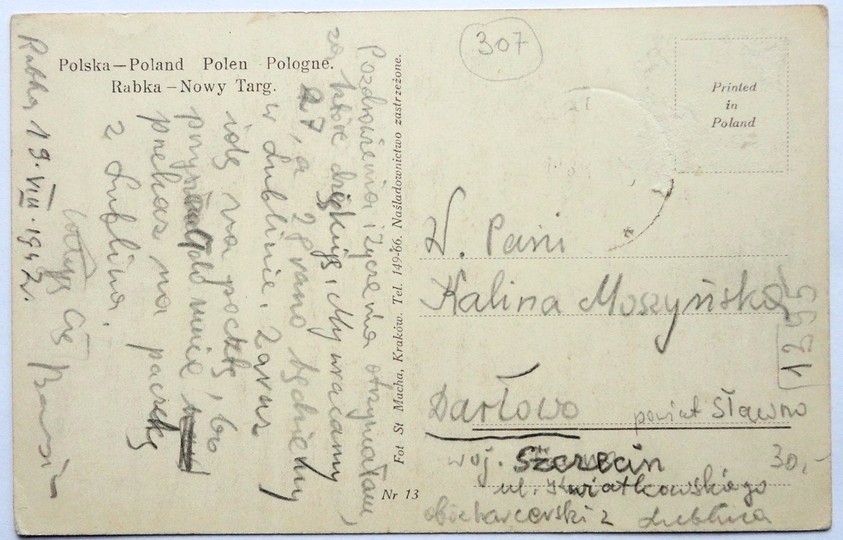 Polska—Poland Polen Pologne.
Rabka—Nowy Targ.
Rabka 19.VIII.1947.
Pozdrowienia i życzenia otrzymałam,
za które dziękuję. My wracamy
27, a 28 rano będziemy
w Lublinie. Zaraz
idę na pocztę, bo
mnie
przekaz na paczkę
z Lublina.
Całuję Cię
Fot St Macha, Kraków. Tel. 149-66. Naśladownictwo zastrzeżone.
Nr 13
307
Printed
in
Poland
W. Pani
Kalina Moszyńska
1395
Darłowo powiat Sławno
woj. Szczecin
30,-
ul. Kwiatkowskiego
obóz harcerski z Lublina